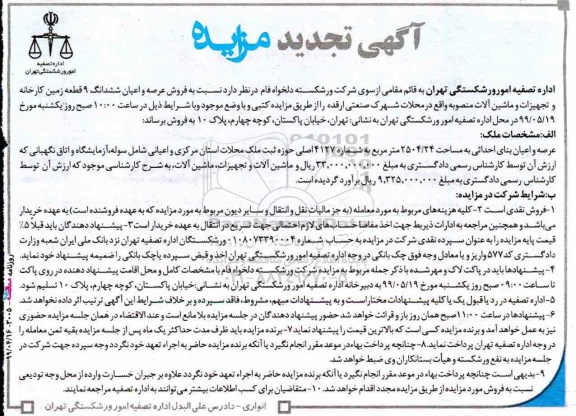 اداره تصفیه
امور ورشکستگی تهران
آگهی تجدید مزایده
اداره تصفیه امور ورشکستگی تهران به قائم مقامی از سوی شرکت ورشکسته دلخواه فام در نظر دارد نسبت به فروش عرصه و اعیان ششدانگ ۹ قطعه زمین کارخانه
و تجهیزات و ماشین آلات منصوبه واقع در محلات شهرک صنعتی ارقده را از طریق مزایده کتبی و با وضع موجود و با شرایط ذیل در ساعت ۱۰:۰۰ صبح روز یکشنبه مورخ
۹۹/۰۵/۱۹ در محل اداره تصفیه امور ورشکستگی تهران به نشانی: تهران، خیابان پاکستان، کوچه چهارم، پلاک ۱۰ به فروش برساند:
الف: مشخصات ملک:
عرصه و اعیان بنای احداثی به مساحت ۲۵۰۴/۲۴ متر مربع به شماره ۴۱۲۷ اصلی حوزه ثبت ملک محلات استان مرکزی و اعیانی شامل سوله، آزمایشگاه و اتاق نگهبانی که
ارزش آن توسط کارشناس رسمی دادگستری به مبلغ ۳۳,۰۰۰,۰۰۰,۰۰۰ ریال و ماشین آلات و تجهیزات، ماشین آلات، به شرح کارشناسی موجود که ارزش آن توسط
کارشناس رسمی دادگستری به مبلغ ۹,۳۲۵,۰۰۰,۰۰۰ ریال برآورد گردیده است.
ب: شرایط شرکت در مزایده:
۱- فروش نقدی است ۲- کلیه هزینه‌های مربوط به مورد معامله (به جز مالیات نقل و انتقال و سایر دیون مربوط به مورد مزایده که به عهده فروشنده است) به عهده خریدار
می‌باشد و همچنین مراجعه به ادارات ذیربط جهت اخذ مفاصا حساب‌های لازم احتمالی جهت تسریع در انتقال به عهده خریدار است ۳- پیشنهاد دهندگان باید قبلا ۵٪
قیمت پایه مزایده را به عنوان سپرده نقدی شرکت در مزایده به حساب شماره ۰۱۰۸۰۷۳۳۹۰۰۰۴ ورشکستگان اداره تصفیه تهران نزد بانک ملی ایران شعبه وزارت
دادگستری کد ۵۷۷ واریز و یا معادل وجه فوق چک بانکی در وجه اداره تصفیه امور ورشکستگی تهران اخذ و قبض سپرده یا چک بانکی را ضمیمه پیشنهاد خود نماید.
۴- پیشنهادها باید در پاکت لاک و مهر شده با ذکر جمله مربوط به مزایده شرکت ورشکسته دلخواه فام با مشخصات کامل و محل اقامت پیشنهاد دهنده در روی پاکت
تا ساعت ۰۹:۰۰ صبح روز یکشنبه مورخ ۹۹/۰۵/۱۹ به دبیرخانه اداره تصفیه امور ورشکستگی تهران به نشانی: خیابان پاکستان، کوچه چهارم، پلاک ۱۰ تسلیم شود.
۵- اداره تصفیه در رد یا قبول یک یا کلیه پیشنهادات مختار است و به پیشنهادات مبهم، مشروط، فاقد سپرده و بر خلاف شرایط این آگهی ترتیب اثر داده نخواهد شد.
۶- پیشنهادها در ساعت ۱۱:۰۰ صبح همان روز باز و قرائت خواهد شد حضور پیشنهاد دهندگان در جلسه مزایده بلامانع است و عندالاقتضاء در همان جلسه مزایده حضوری
نیز به عمل خواهد آمد و برنده مزایده کسی است که بالاترین قیمت را پیشنهاد نماید ۷- برنده مزایده باید ظرف مدت حداکثر یک ماه پس از جلسه مزایده بقیه ثمن معامله را
در وجه اداره تصفیه تهران پرداخت نماید. ۸- چنانچه پرداخت بهاء در موعد مقرر انجام نگیرد یا آنکه برنده مزایده حاضر به اجراء تعهد خود نگردد وجه سپرده جهت شرکت در
جلسه مزایده به نفع ورشکسته و هیأت بستانکاران وی ضبط خواهد شد.
۹- بدیهی است چنانچه پرداخت بهاء در موعد مقرر انجام نگیرد یا آنکه برنده مزایده حاضر به اجراء تعهد خود نگردد علاوه بر جبران خسارت وارده از محل وجه تودیعی
نسبت به فروش مورد مزایده از طریق مزایده مجدد اقدام خواهد شد. ۱۰- متقاضیان برای کسب اطلاعات بیشتر می‌توانند به اداره تصفیه مراجعه نمایند.
انواری - دادرس علی البدل اداره تصفیه امور ورشکستگی تهران